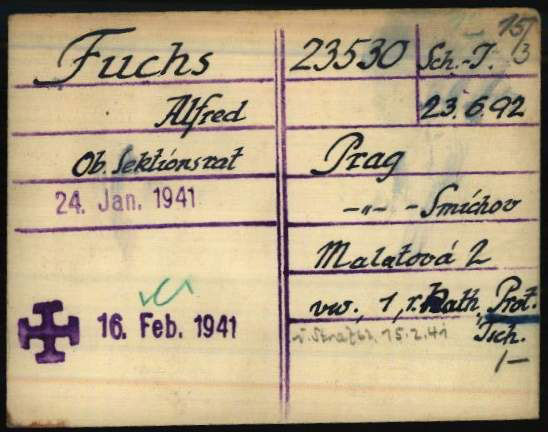 15/3
Fuchs
Alfred
Ob. Sektionsrat
24. Jan. 1941
16. Feb. 1941
23530
Sch.-J.
23.6.92
Prag
-"- - Smíchov
Malatová 2
vw., 1, r. Kath, Prot.
15.2.41
Tsch.
1-